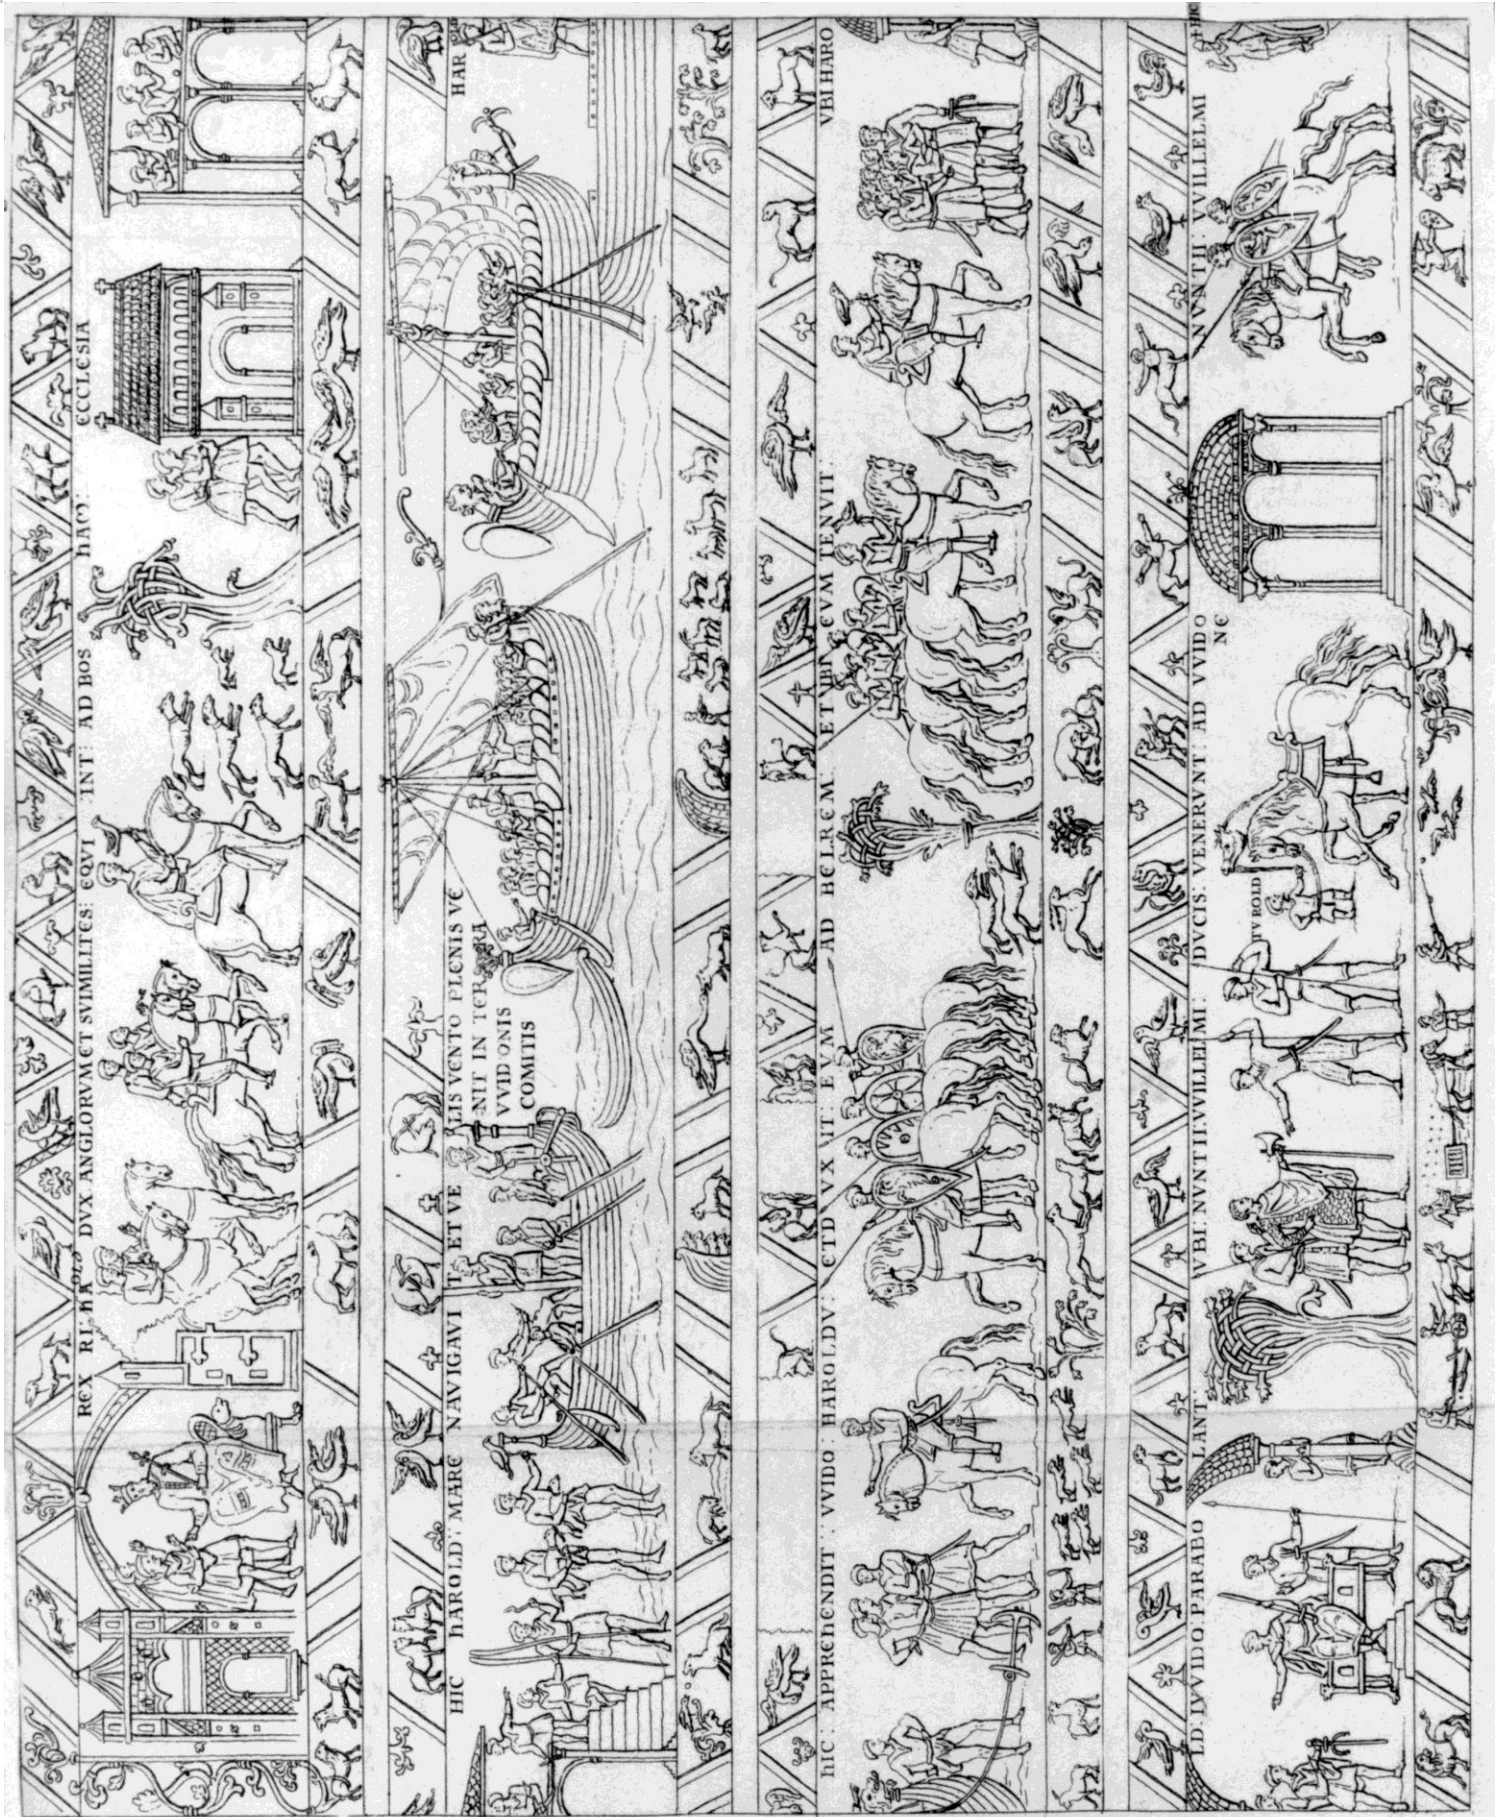 REX RI: hA ROLD DVX ANGLORVM ET SVI MILITES: EQVI INT: AD BOS hAM: ECCLESIA
HIC hAROLD: MARE NAVIGAVI T ET VE LIS VENTO PLENIS VE
NIT IN TERRA
VVIDONIS
COMITIS
HAR
hIC: APPREhENDIT: VVIDO: HAROLDV: ET D VX VIT: EVM AD BELREM: ET IBI EVM TENVIT: VBI HARO
LD: IVVIDO: PARABO LANT: VBI: NVNTII: VVILLELMI: DVCIS: VENERVNT: AD VVIDO
NE
TVROLD
NVNTII: VVILLELMI HIC